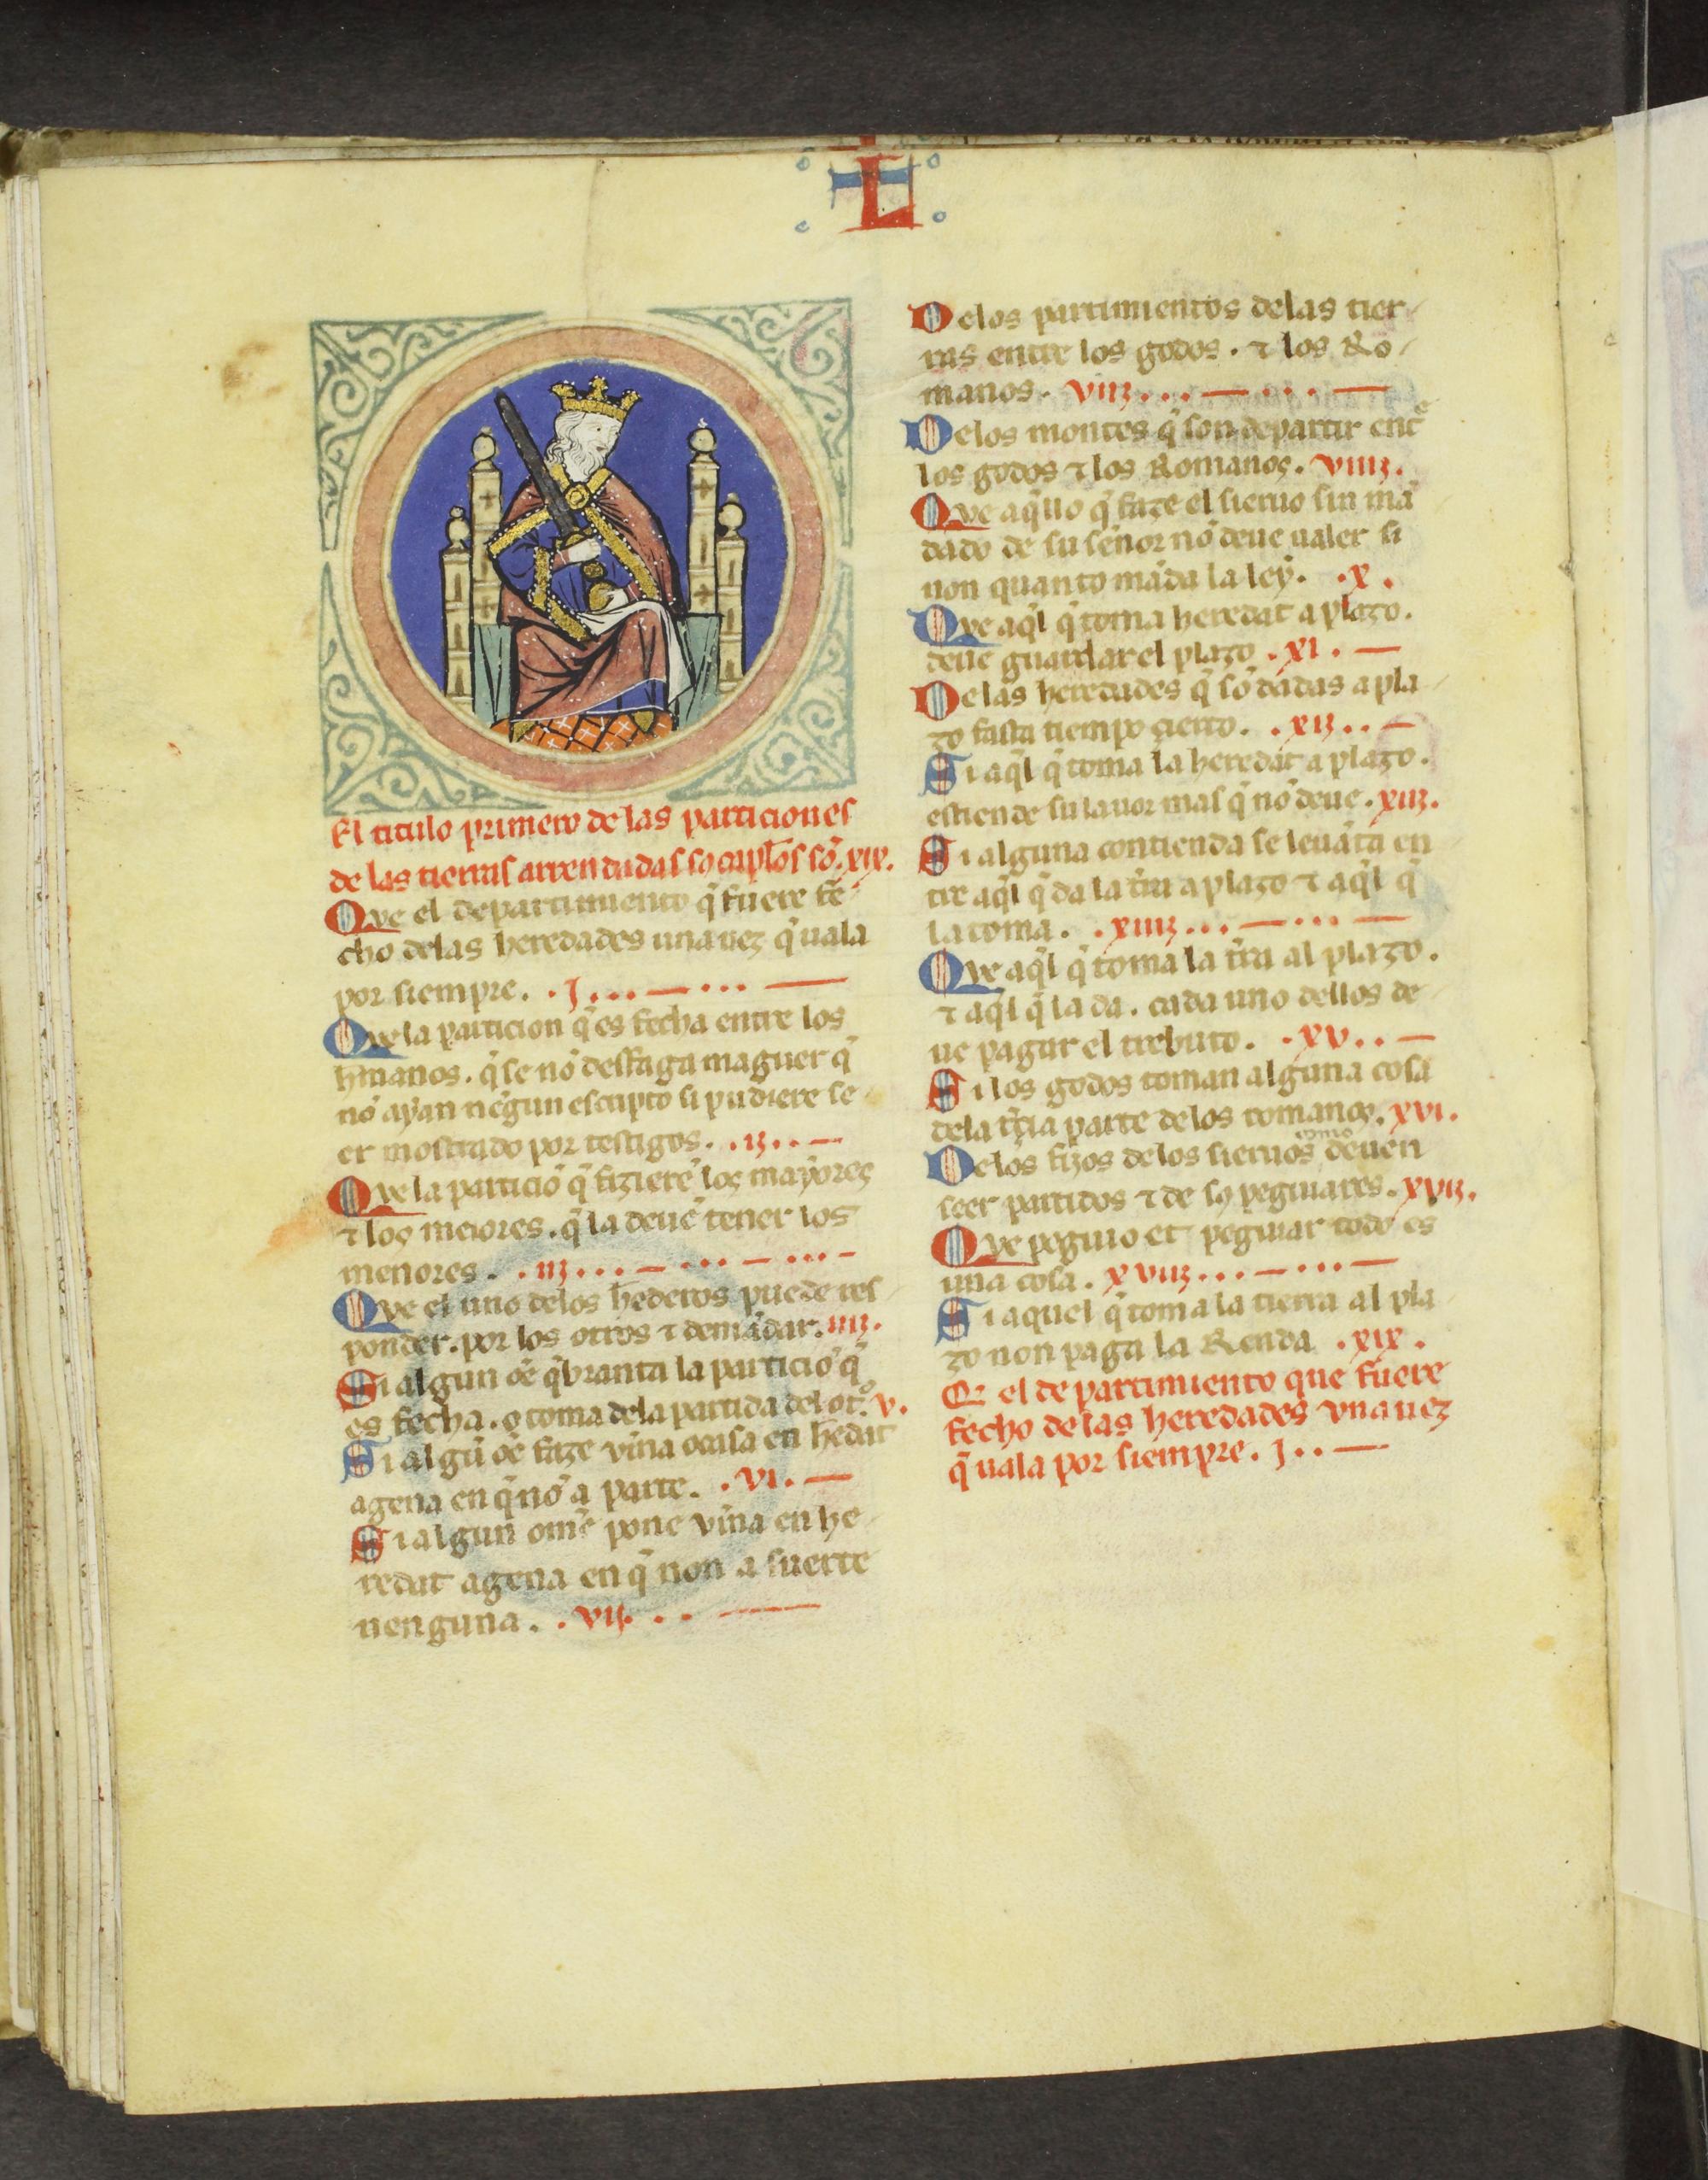 L
El titulo primero de las particiones
de las tierras arrendadas ⁊ los capłos sõ .xix.
Que el departimiento q̃ fuere fe-
cho delas heredades una uez q̃ uala
por siempre. .j.
Que la particion q̃ es fecha entre los
hr̃manos. q̃ se nõ desfaga maguer q̃
nõ ayan negun escripto si pudiere se
er mostrado por testigos. .ij.
Que la particiõ q̃ fizierẽ los mayores
⁊ los meiores. q̃ la deuẽ tener los
menores. .iij.
Que el uno delos hederos puede res
ponder. por los otros ⁊ demãdar. iiij.
Si algun oẽ q̃branta la particiõ q̃
es fecha. o toma dela partida del otº. v.
Si algũ oẽ faze vĩna o casa en hedat
agena en q̃ nõ a parte. .vi.
Si algun omẽ pone vĩna en he
redat agena en q̃ non a suerte
nenguna. .vij.
Delos partimientos delas tier-
ras entre los godos. ⁊ los Ro-
manos. viij.
Delos montes q̃ son de partir entᵉ
los godos ⁊ los Romanos. viiij.
Que aq̃llo q̃ faze el sieruo sin mã
dado de su señor nõ deue ualer si
non quanto mãda la ley. .x.
Que aq̃l q̃ toma heredat a plazo.
deue guardar el plazo .xi.
Delas heredades q̃ sõ dadas a pla
zo fasta tiempo cierto. .xij.
Si aq̃l q̃ toma la heredat a plazo.
estiende su lauor mas q̃ nõ deue. xiij.
Si alguna contienda se leuãta en
tre aq̃l q̃ da la tr̃ra a plazo ⁊ aq̃l q̃
la toma. .xiiij.
Que aq̃l q̃ toma la tr̃ra al plazo.
⁊ aq̃l q̃ la da. cada uno dellos de
ue pagar el trebuto. .xv.
Si los godos toman alguna cosa
dela tr̃cia parte de los romanos. xvi.
Delos fijos delos sieruos como deuen
seer partidos ⁊ de so peguiares. xvij.
Que peguio et peguiar todo es
una cosa. xviij.
Si aquel q̃ toma la tierra al pla
zo non paga la Renda .xix.
Q̃ el departimiento que fuere
fecho de las heredades una uez
q̃ uala por siempre. j.